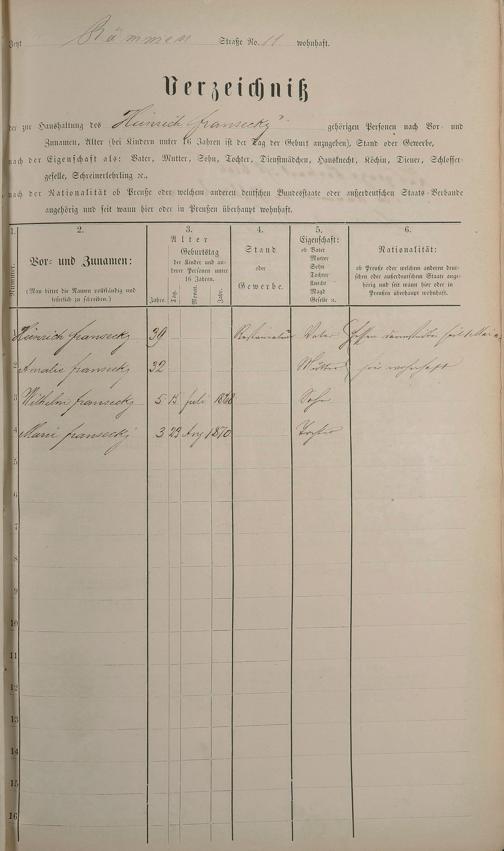 Jetzt Kämmer Straße No. 11 wohnhaft.
Verzeichniß
der zur Haushaltung des Heinrich Fransecky gehörigen Personen nach Vor- und
Zunamen, Alter (bei Kindern unter 16 Jahren ist der Tag der Geburt anzugeben), Stand oder Gewerbe,
nach der Eigenschaft als: Vater, Mutter, Sohn, Tochter, Dienstmädchen, Hausknecht, Köchin, Diener, Schlosser-
geselle, Schreinerlehrling ꝛc.,
nach der Nationalität ob Preuße oder welchem anderen deutschen Bundesstaate oder außerdeutschen Staats-Verbande
angehörig und seit wann hier oder in Preußen überhaupt wohnhaft.
1. 2. 3. 4. 5. 6.
Nummer.
Vor- und Zunamen:
(Man bittet die Namen vollständig und
leserlich zu schreiben.)
Alter
Geburtstag
der Kinder und an-
derer Personen unter
16 Jahren.
Jahre. Tag. Monat. Jahr.
Stand
oder
Gewerbe.
Eigenschaft:
ob Vater
Mutter
Sohn
Tochter
Knecht
Magd
Geselle ꝛc.
Nationalität:
ob Preuße oder welchem anderen deut-
schen oder außerdeutschen Staate ange-
hörig und seit wann hier oder in
Preußen überhaupt wohnhaft.
1 Heinrich Fransecky 39 Restaurateur Vater Hessen
2 Amalie Fransecky 32 Mutter hier wohnhaft
3 Wilhelm Fransecky 5 13 Juli 1868 Sohn
4 Marie Fransecky 3 29 Aug 1870 Tochter
5
6
7
8
9
10
11
12
13
14
15
16